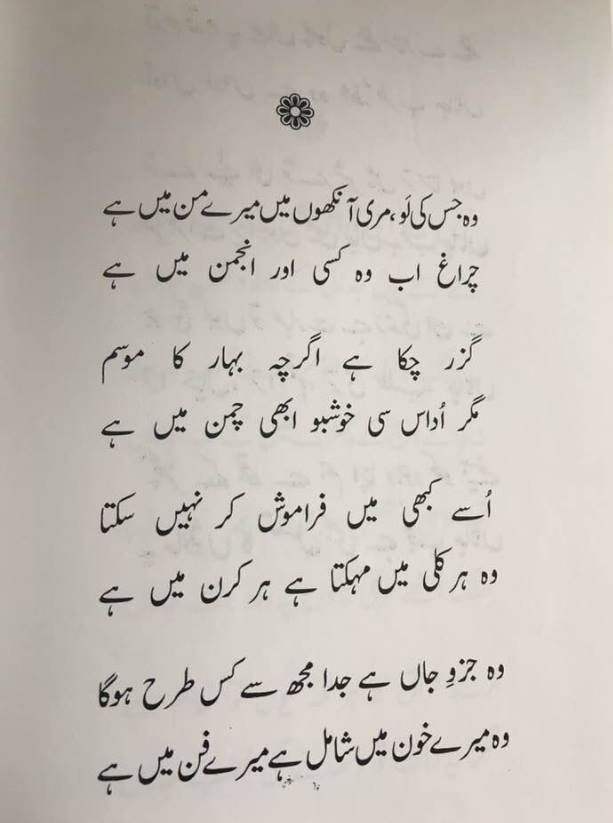 وہ جس کی لَو، مری آنکھوں میں میرے من میں ہے
چراغ اب وہ کسی اور انجمن میں ہے
گزر چکا ہے اگرچہ بہار کا موسم
مگر اُداس سی خوشبو ابھی چمن میں ہے
اُسے کبھی میں فراموش کر نہیں سکتا
وہ ہر کلی میں مہکتا ہے ہر کرن میں ہے
وہ جزوِ جاں ہے جدا مجھ سے کس طرح ہوگا
وہ میرے خون میں شامل ہے میرے فن میں ہے